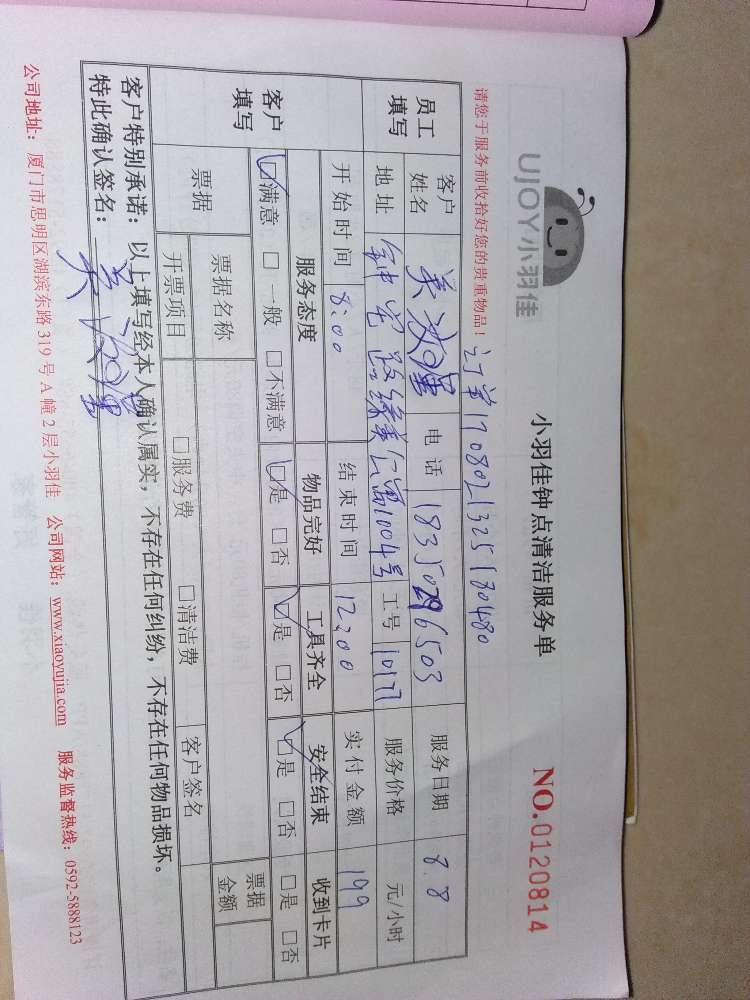 UJOY小羽佳
小羽佳钟点清洁服务单
NO.0120814
请您于服务前收拾好您的贵重物品！
订单1708021325180480
员工填写
客户姓名 吴 电话 18350296503 服务日期 8.8
地址 1004号 工号 10177 服务价格 元/小时
开始时间 8:00 结束时间 12:00 实付金额 199
客户填写
服务态度 物品完好 工具齐全 安全结束 收到卡片
☑满意 □一般 □不满意 ☑是 □否 ☑是 □否 ☑是 □否 □是 □否
票据 票据名称 票据金额
开票项目 □服务费 □清洁费 客户签名
客户特别承诺：以上填写经本人确认属实，不存在任何纠纷，不存在任何物品损坏。
特此确认签名：吴
公司地址：厦门市思明区湖滨东路319号A幢2层小羽佳 公司网站：www.xiaoyujia.com 服务监督热线：0592-5888123